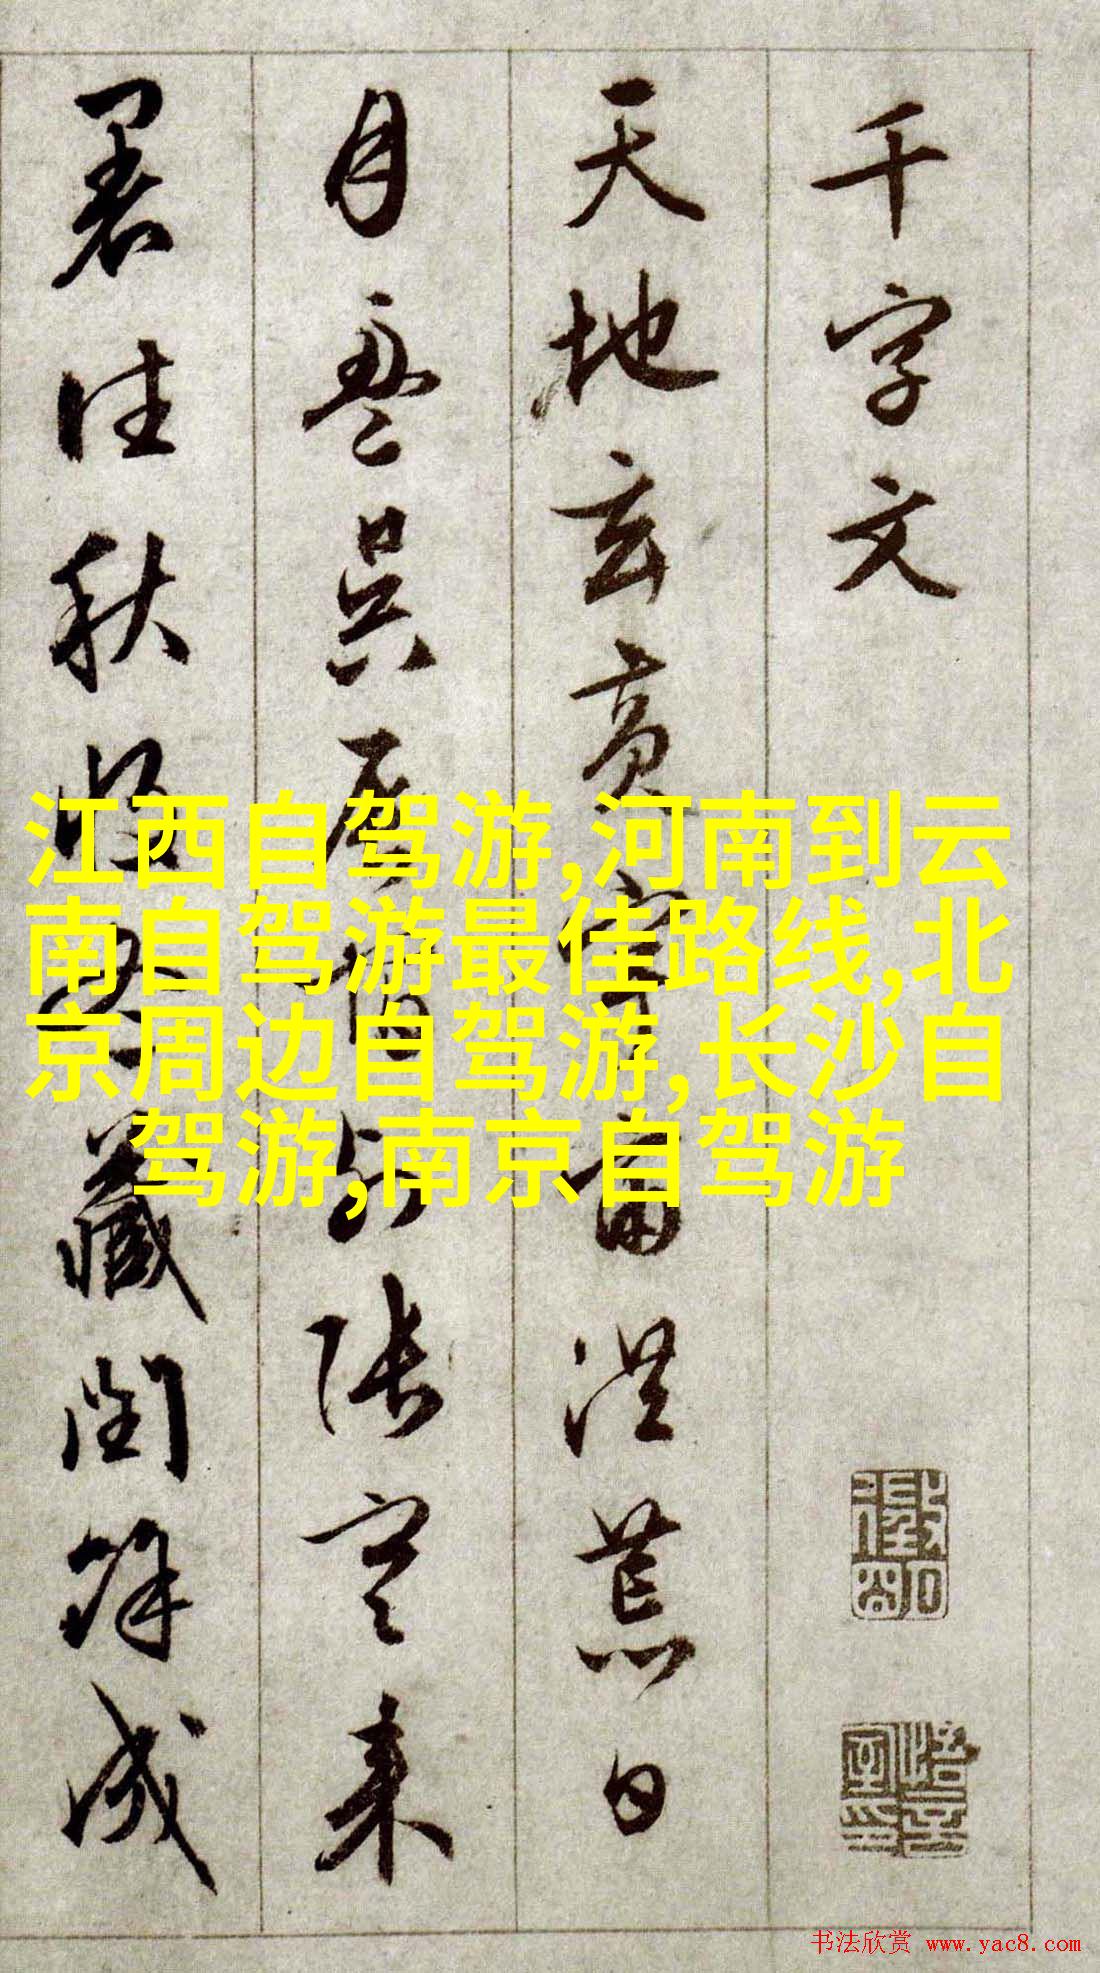 千字文
天地玄黄宇宙洪荒日
月盈昃辰宿列張寒来
暑往秋收冬藏閏餘成
江西自驾游,河南到云
南自驾游最佳路线,北
京周边自驾游,长沙自
驾游,南京自驾游
书法欣赏 www.yac8.com